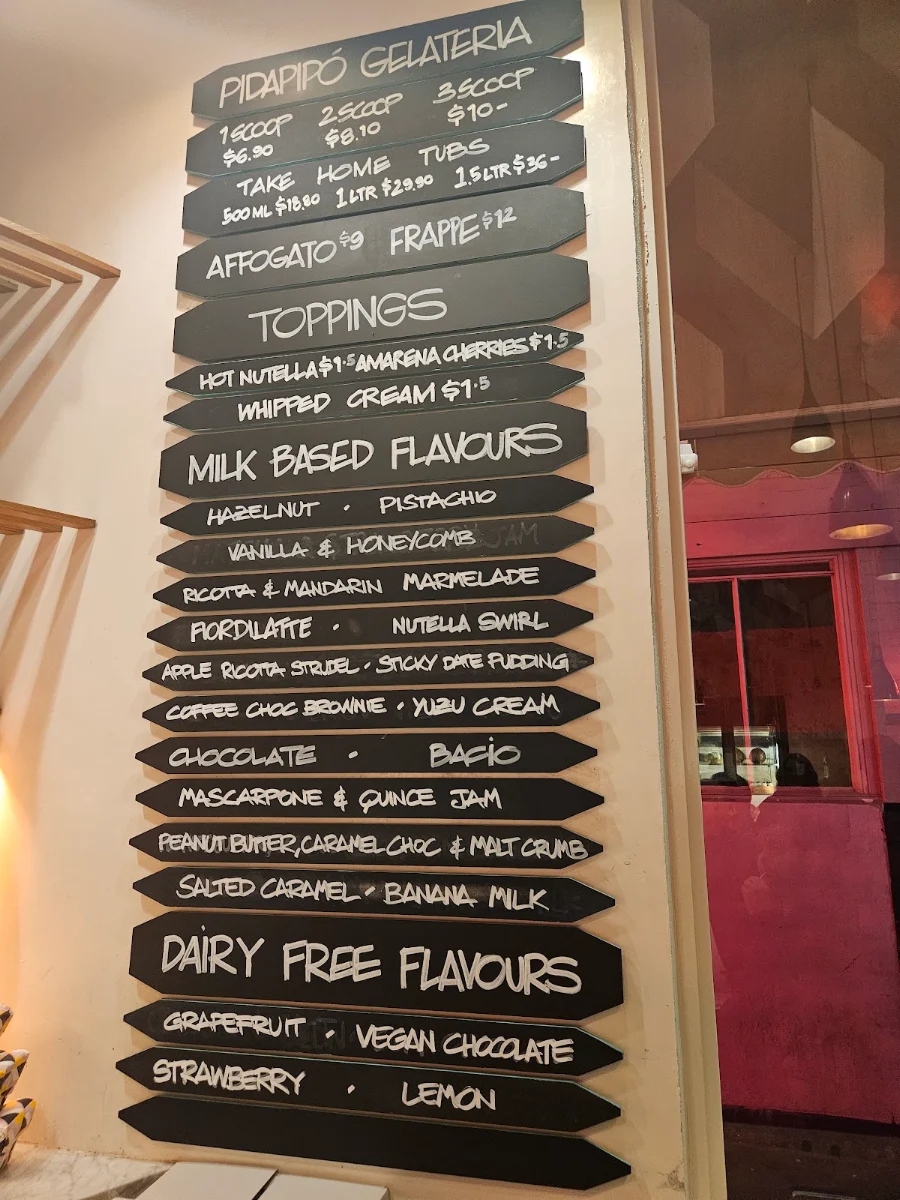 PIDAPIPÓ GELATERIA
1 SCOOP 2 SCOOP 3 SCOOP
$6.90 $8.10 $10-
TAKE HOME TUBS
500 ML $18.80 1 LTR $29.90 1.5 LTR $36-
AFFOGATO $9 FRAPPE $12
TOPPINGS
HOT NUTELLA $1.5 AMARENA CHERRIES $1.5
WHIPPED CREAM $1.5
MILK BASED FLAVOURS
HAZELNUT · PISTACHIO
VANILLA & HONEYCOMB
RICOTTA & MANDARIN MARMELADE
FIORDILATTE · NUTELLA SWIRL
APPLE RICOTTA STRUDEL · STICKY DATE PUDDING
COFFEE CHOC BROWNIE · YUZU CREAM
CHOCOLATE · BACIO
MASCARPONE & QUINCE JAM
PEANUT BUTTER, CARAMEL CHOC & MALT CRUMB
SALTED CARAMEL · BANANA MILK
DAIRY FREE FLAVOURS
GRAPEFRUIT · VEGAN CHOCOLATE
STRAWBERRY · LEMON